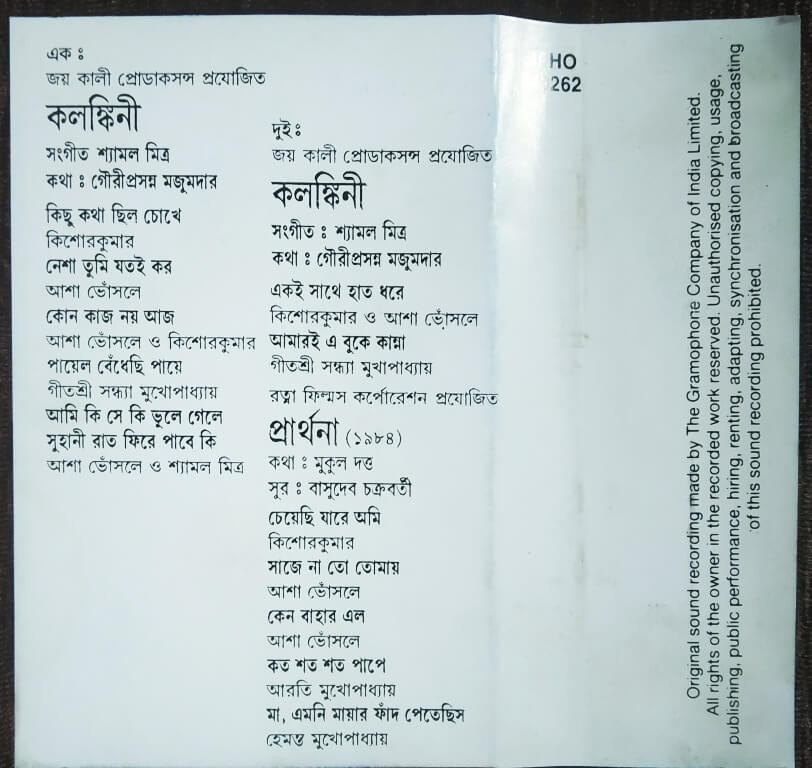 এক :
জয় কালী প্রোডাকসন্স প্রযোজিত
কলঙ্কিনী
সংগীত শ্যামল মিত্র
কথা : গৌরীপ্রসন্ন মজুমদার
কিছু কথা ছিল চোখে
কিশোরকুমার
নেশা তুমি যতই কর
আশা ভোঁসলে
কোন কাজ নয় আজ
আশা ভোঁসলে ও কিশোরকুমার
পায়েল বেঁধেছি পায়ে
গীতশ্রী সন্ধ্যা মুখোপাধ্যায়
আমি কি সে কি ভুলে গেলে
সুহানী রাত ফিরে পাবে কি
আশা ভোঁসলে ও শ্যামল মিত্র
দুই :
জয় কালী প্রোডাকসন্স প্রযোজিত
কলঙ্কিনী
সংগীত : শ্যামল মিত্র
কথা : গৌরীপ্রসন্ন মজুমদার
একই সাথে হাত ধরে
কিশোরকুমার ও আশা ভোঁসলে
আমারই এ বুকে কান্না
গীতশ্রী সন্ধ্যা মুখাপাধ্যায়
রত্না ফিল্মস কর্পোরেশন প্রযোজিত
প্রার্থনা (১৯৮৪)
কথা : মুকুল দত্ত
সুর : বাসুদেব চক্রবর্তী
চেয়েছি যারে অমি
কিশোরকুমার
সাজে না তো তোমায়
আশা ভোঁসলে
কেন বাহার এল
আশা ভোঁসলে
কত শত শত পাপে
আরতি মুখোপাধ্যায়
মা, এমনি মায়ার ফাঁদ পেতেছিস
হেমন্ত মুখোপাধ্যায়
HO
262
Original sound recording made by The Gramophone Company of India Limited.
All rights of the owner in the recorded work reserved. Unauthorised copying, usage,
publishing, public performance, hiring, renting, adapting, synchronisation and broadcasting
of this sound recording prohibited.